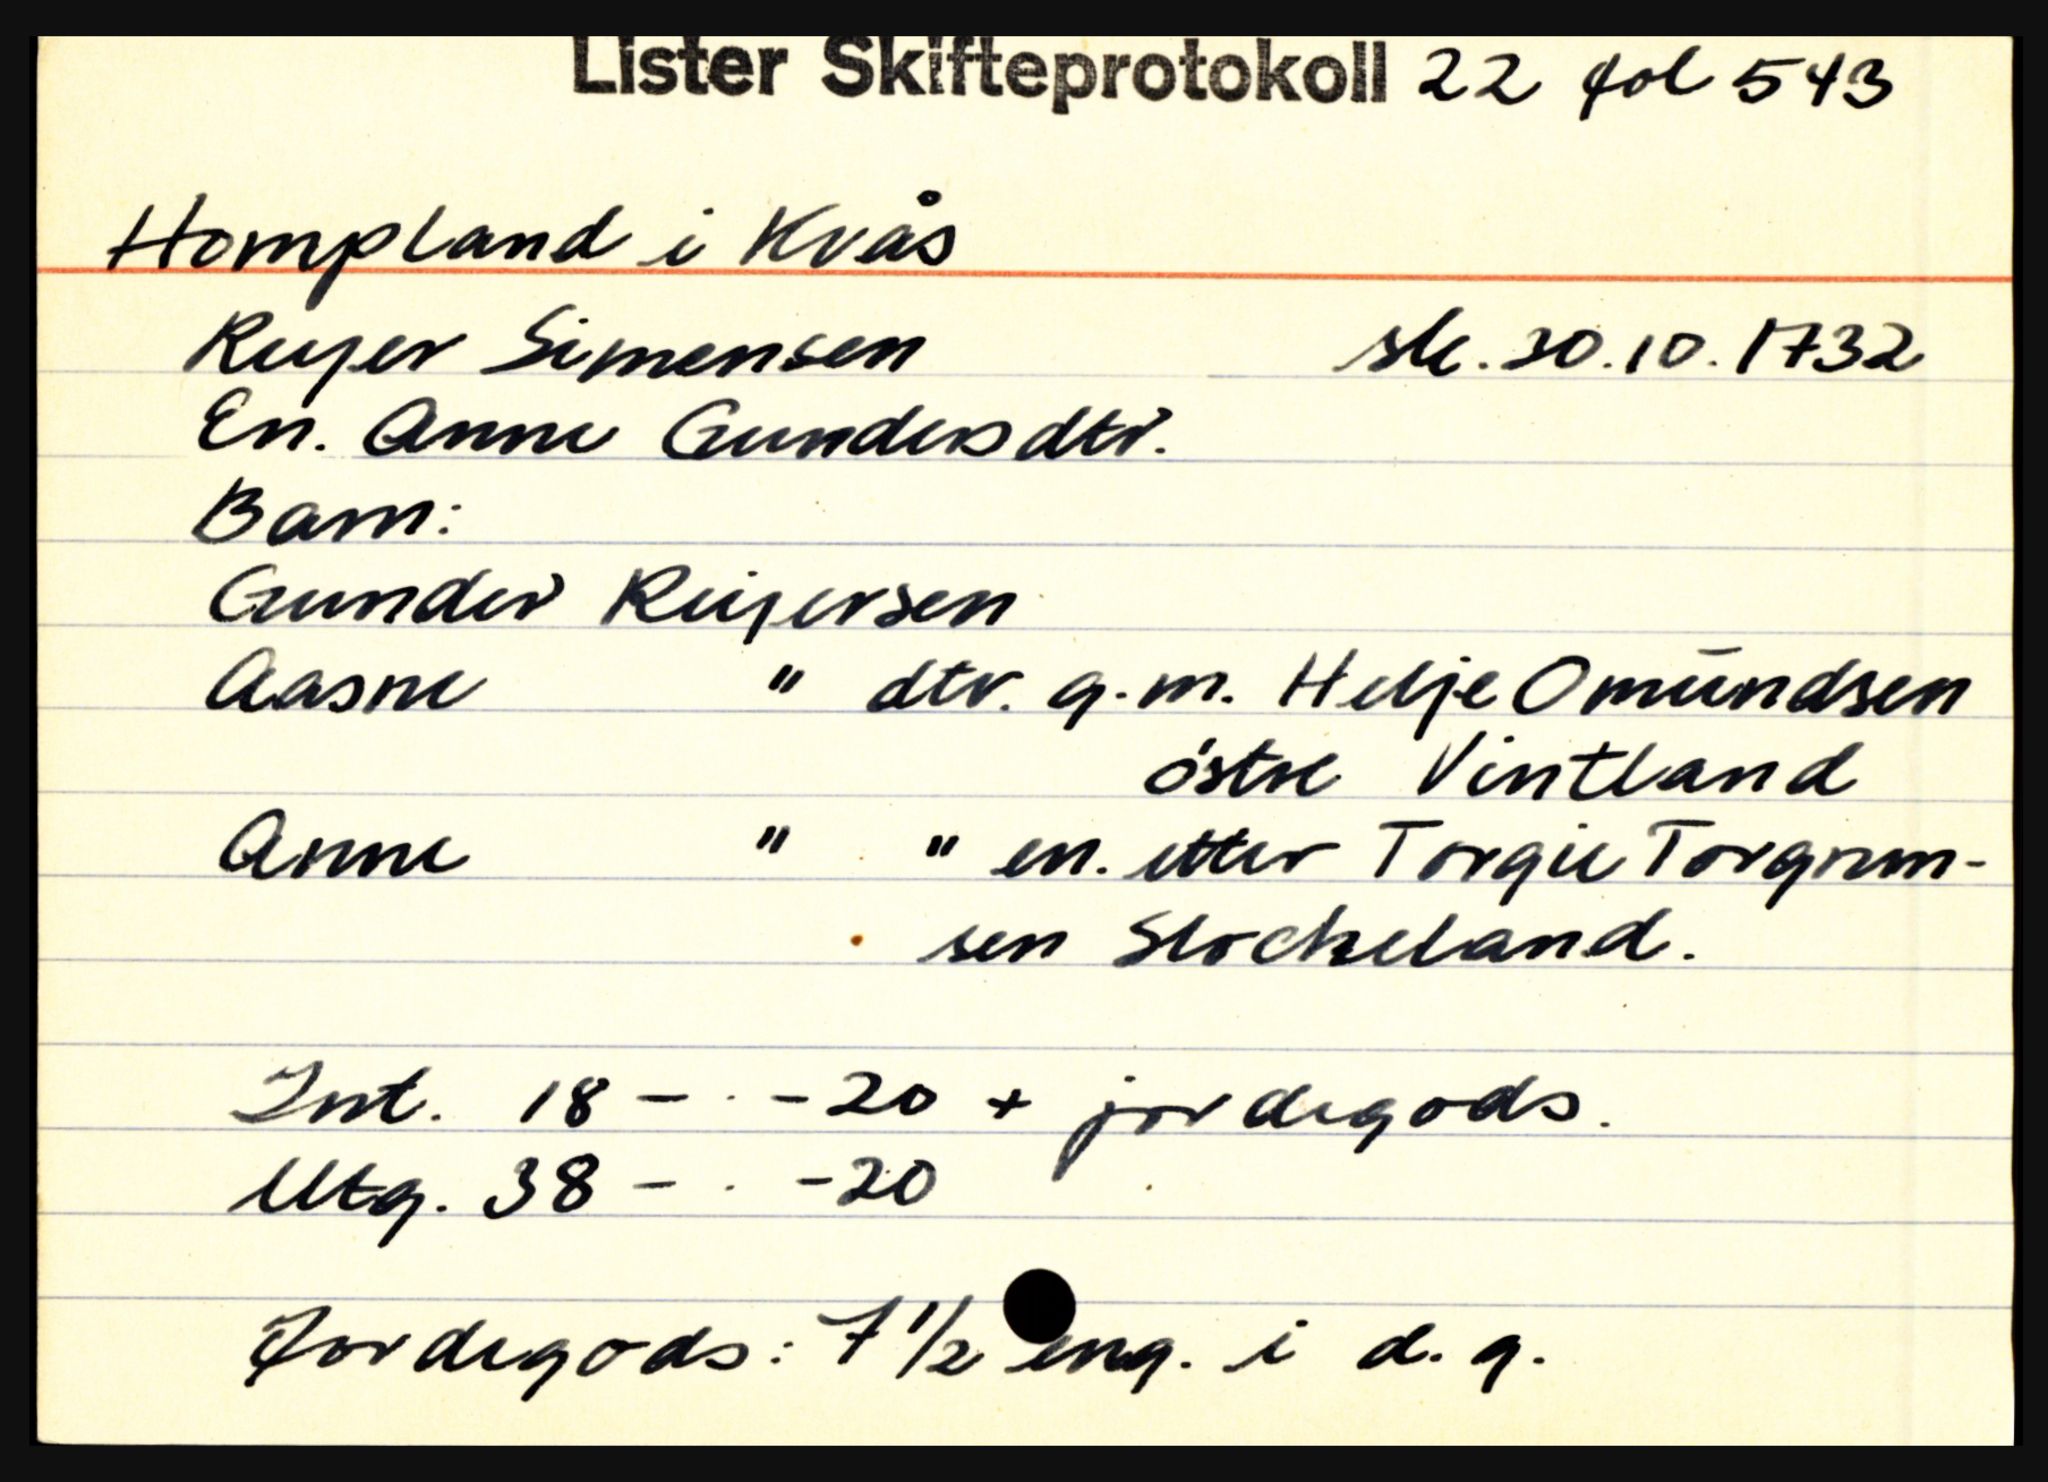 Lister Skifteprotokoll 22 fol 543
Hompland i Kvås
Reyer Simensen sk. 30.10.1732
En. Anne Gundersdtr.
Barn:
Gunder Reiersen
Aasne " dtr. g.m. Helje Omundsen
östre Vintland
Anne " " en. etter Torgie Torgrim-
sen Stockeland.
Int. 18 - . - 20 + jordegods.
Utg. 38 - . - 20
Jordegods: 7 1/2 eng. i d. g.